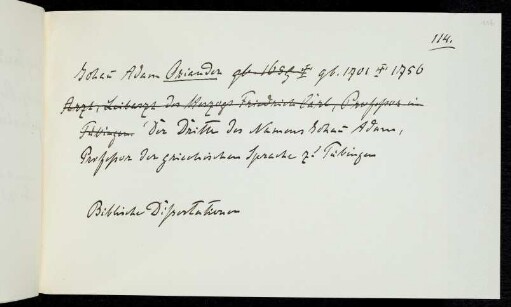 114.
Johañ Adam Osiander gb. 1659 † gb. 1701 † 1756
Arzt, Leibarzt des Herzogs Friedrich Carl, Professor in
Tübingen. Der Dritte des Namens Johañ Adam,
Professor der griechischen Sprache z. Tübingen
Biblische Dissertationen